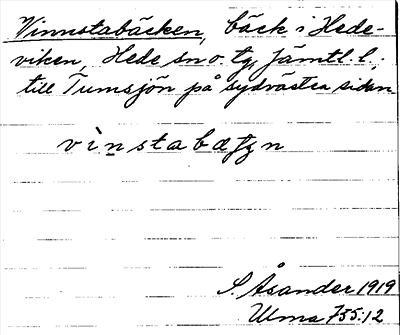 Vinnstabäcken, bäck i Hede-
viken, Hede sn o. tg, Jämtl. l.,
till Tumsjön på sydvästra sidan
vinstabæʃʒn
S. Åsander 1919
Ulma 755:12